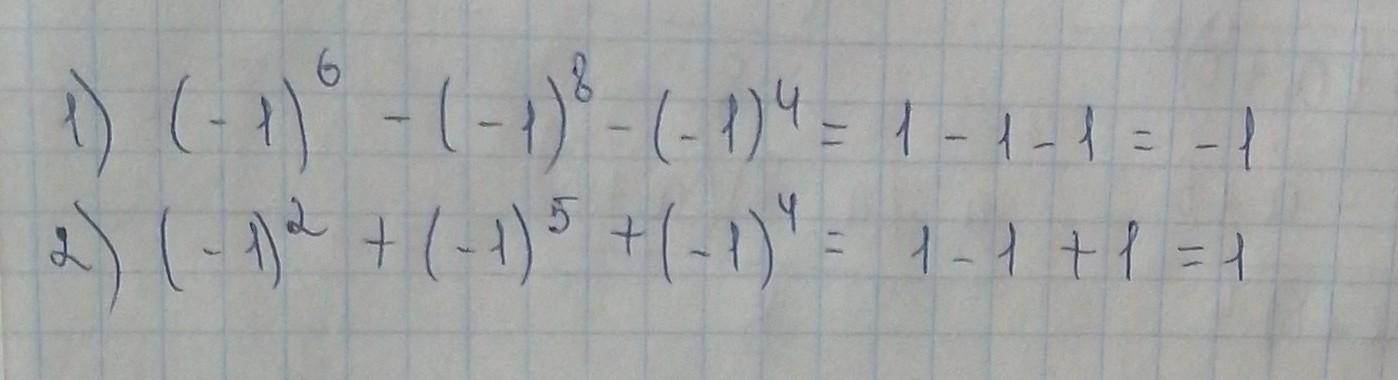 1) (-1)⁶ - (-1)⁸ - (-1)⁴ = 1 - 1 - 1 = -1
2) (-1)² + (-1)⁵ + (-1)⁴ = 1 - 1 + 1 = 1